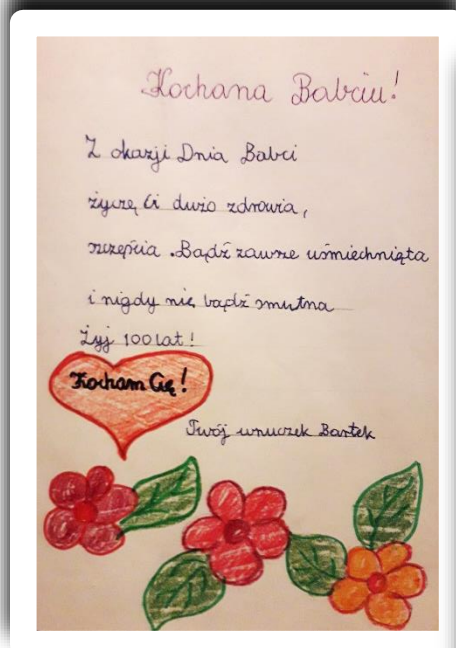 Kochana Babciu!
Z okazji Dnia Babci
życzę Ci dużo zdrowia,
szczęścia. Bądź zawsze uśmiechnięta
i nigdy nie bądź smutna
Żyj 100 lat!
Kocham Cię!
Twój wnuczek Bartek